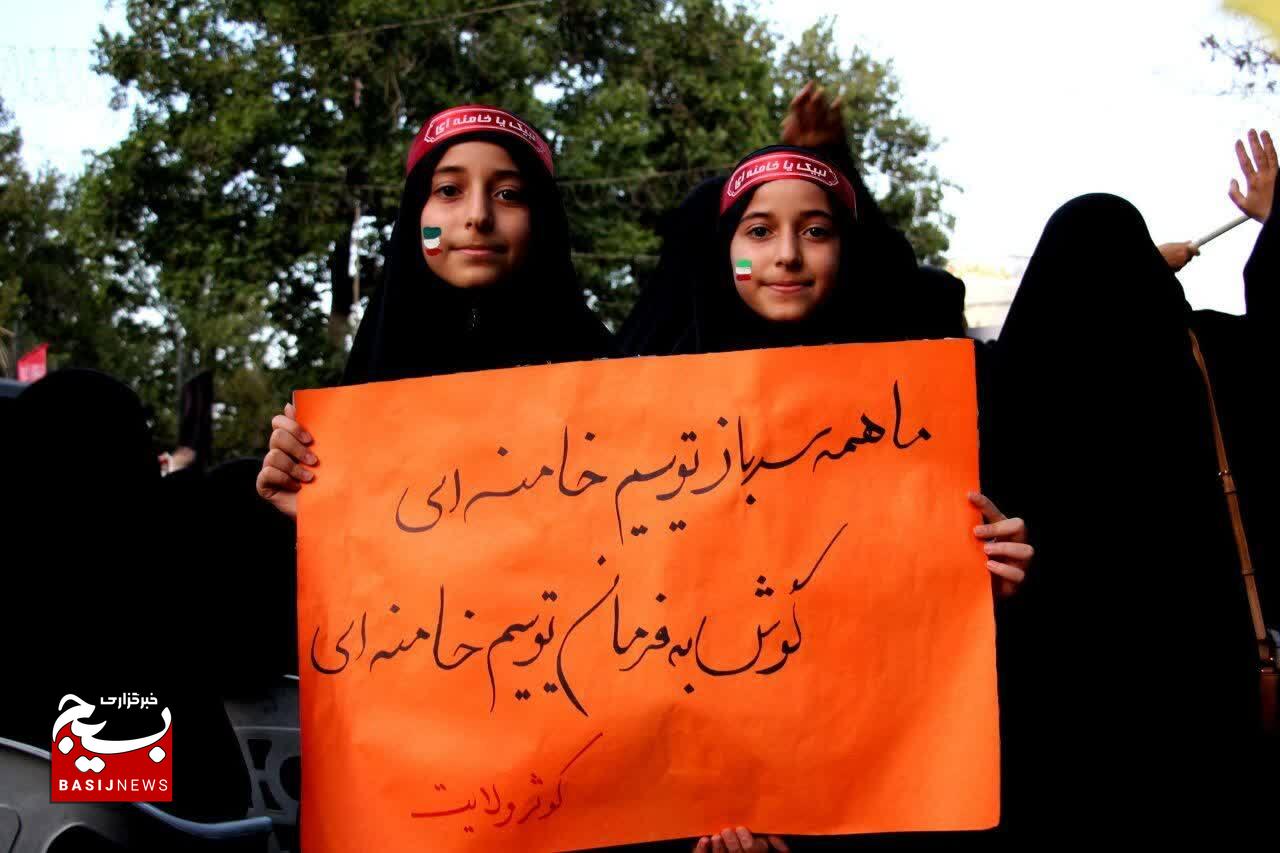 لبیک یا خامنه ای
لبیک یا خامنه ای
ما همه سرباز توییم خامنه ای
گوش به فرمان توییم خامنه ای
کوثر ولایت
خبرگزاری
بسیج
BASIJNEWS